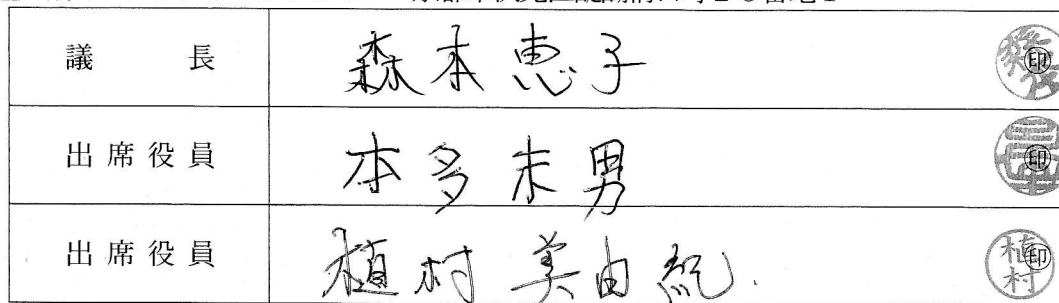 議長 森本恵子 ㊞
出席役員 本多末男 ㊞
出席役員 植村美由紀. ㊞ 植村